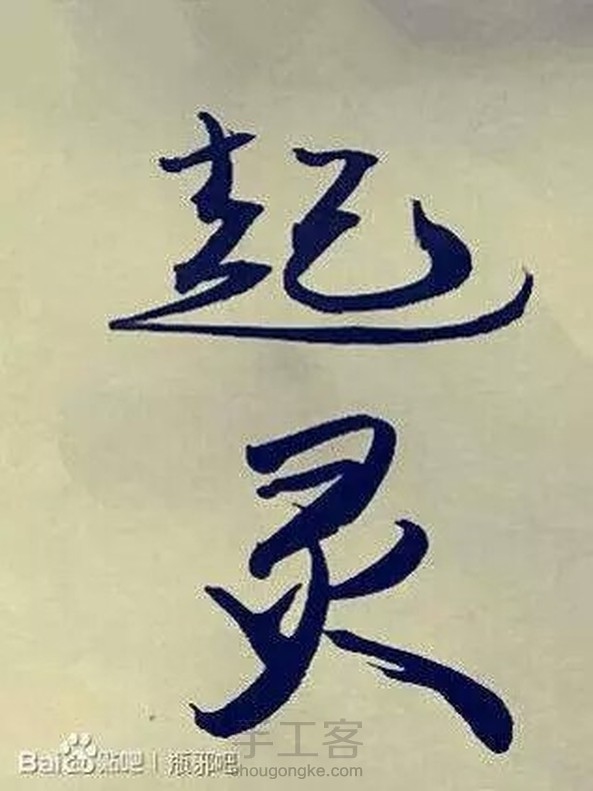 起
灵
手工客
shougongke.com
Baidu贴吧 | 瓶邪吧